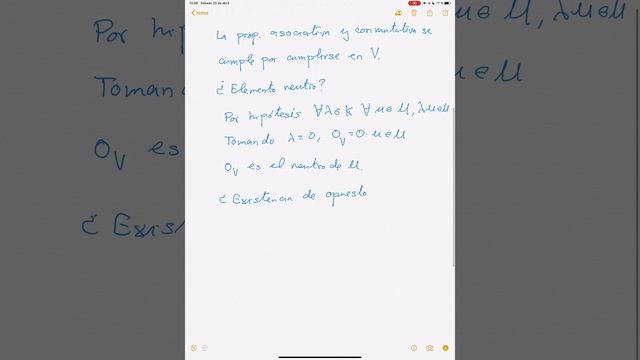 13:08 Sábado 25 de abril
Notas
La prop. asociativa y conmutativa se
cumple por cumplirse en V.
¿Elemento neutro?
Por hipótesis ∀λ∈K ∀u∈U, λu∈U
Tomando λ=0, 0_V=0·u∈U
0_V es el neutro de U.
¿Existencia de opuesto